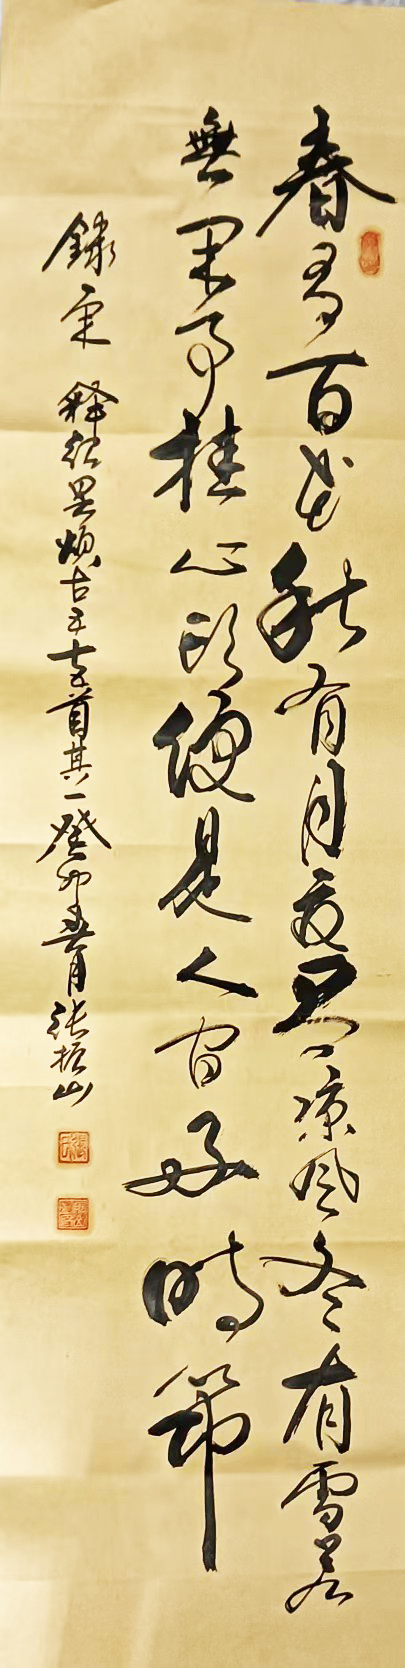 春有百花秋有月夏有凉風冬有雪若
無閑事挂心頭便是人間好時節
錄宋 释紹曇頌古五十五首其一 癸卯 月 张振山